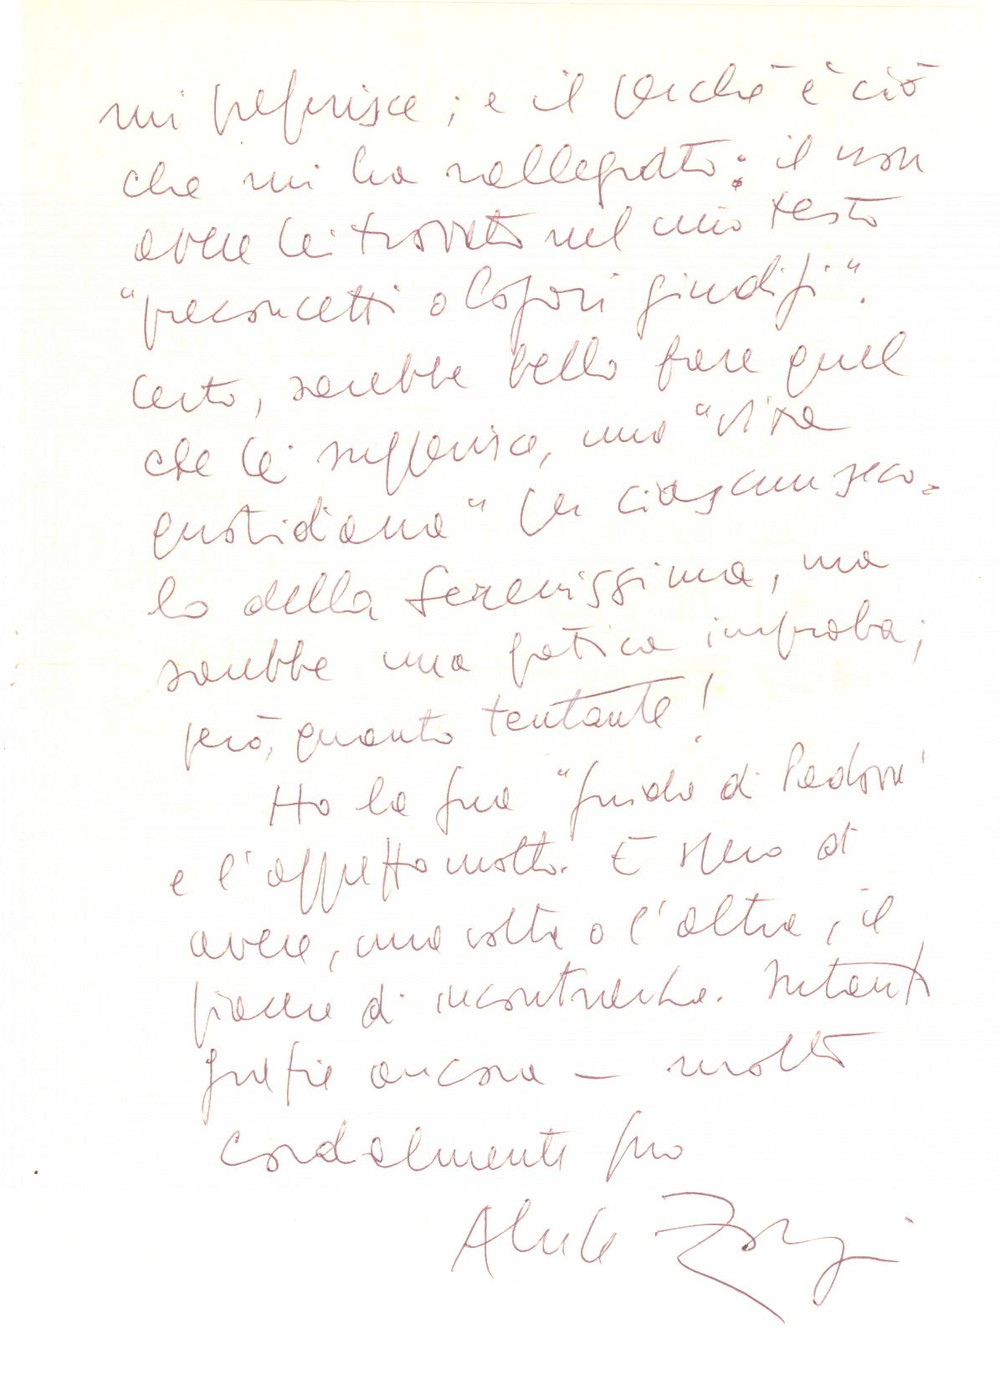 mi preferisce; e il perché è ciò
che mi ha rallegrato: il non
avere Lei trovato nel mio testo
"preconcetti o logori giudizi".
Certo, sarebbe bello fare quel
che Lei suggerisce, una "vita
quotidiana" per ciascun seco=
lo della Serenissima, ma
sarebbe una fatica improba;
però, quanto tentante!
Ho la sua "guida di Padova"
e l'apprezzo molto. E spero di
avere, una volta o l'altra, il
piacere di incontrarLa. Intanto
grazie ancora – molto
cordialmente suo
Alvise Zorzi